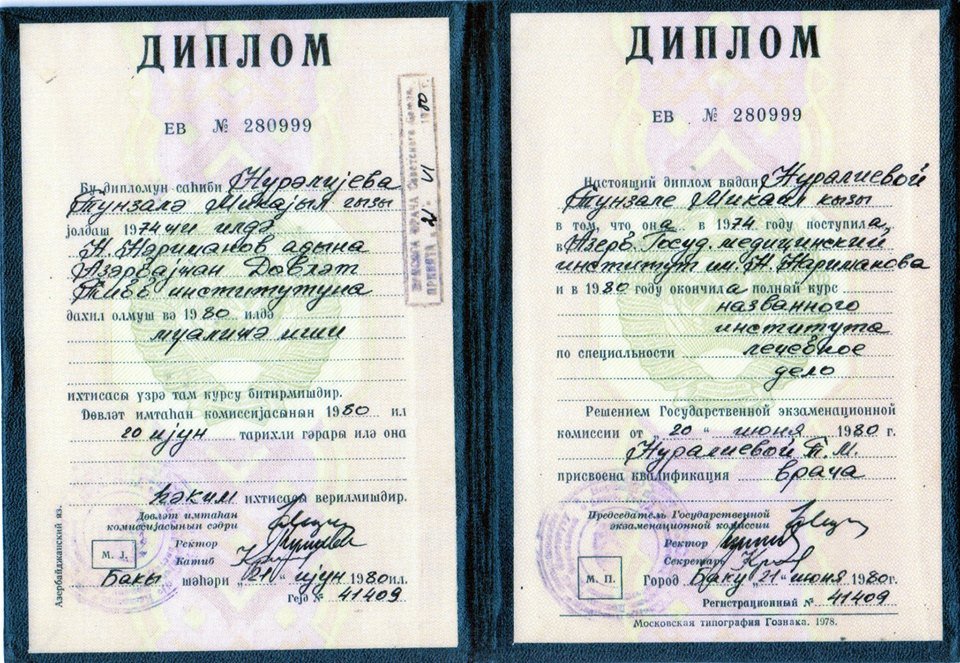 ДИПЛОМ
ЕВ № 280999
Бу дипломун саһиби Нурәлијева
Түнзалә Микајыл гызы
јолдаш 1974 чи илдә
Н. Нәриманов адына
Азәрбајҹан Дөвләт
Тибб институтуна
дахил олмуш вә 1980 илдә
муалиҹә иши
ихтисасы үзрә там курсу битирмишдир.
Дөвләт имтаһан комиссијасынын 1980 ил
20 ијун тарихли гәрары илә она
һәким ихтисасы верилмишдир.
Дөвләт имтаһан
комиссијасынын сәдри
Ректор
Катиб
М. Ј.
Бакы шәһәри „21“ ијун 1980 ил.
Гејд № 41409
Азербайджанский яз.
ПРИСЯГА ВРАЧА Советского Союза
ПРИНЯТА „21“ VI 1980 г.
ДИПЛОМ
ЕВ № 280999
Настоящий диплом выдан Нуралиевой
Тунзале Микаил кызы
в том, что она в 1974 году поступила
в Азерб. Госуд. медицинский
институт им. Н. Нариманова
и в 1980 году окончила полный курс
названного
института
по специальности лечебное
дело
Решением Государственной экзаменационной
комиссии от „20“ июня 1980 г.
Нуралиевой Т. М.
присвоена квалификация врача
Председатель Государственной
экзаменационной комиссии
Ректор
Секретарь
М. П.
Город Баку „21“ июня 1980 г.
Регистрационный № 41409
Московская типография Гознака. 1978.